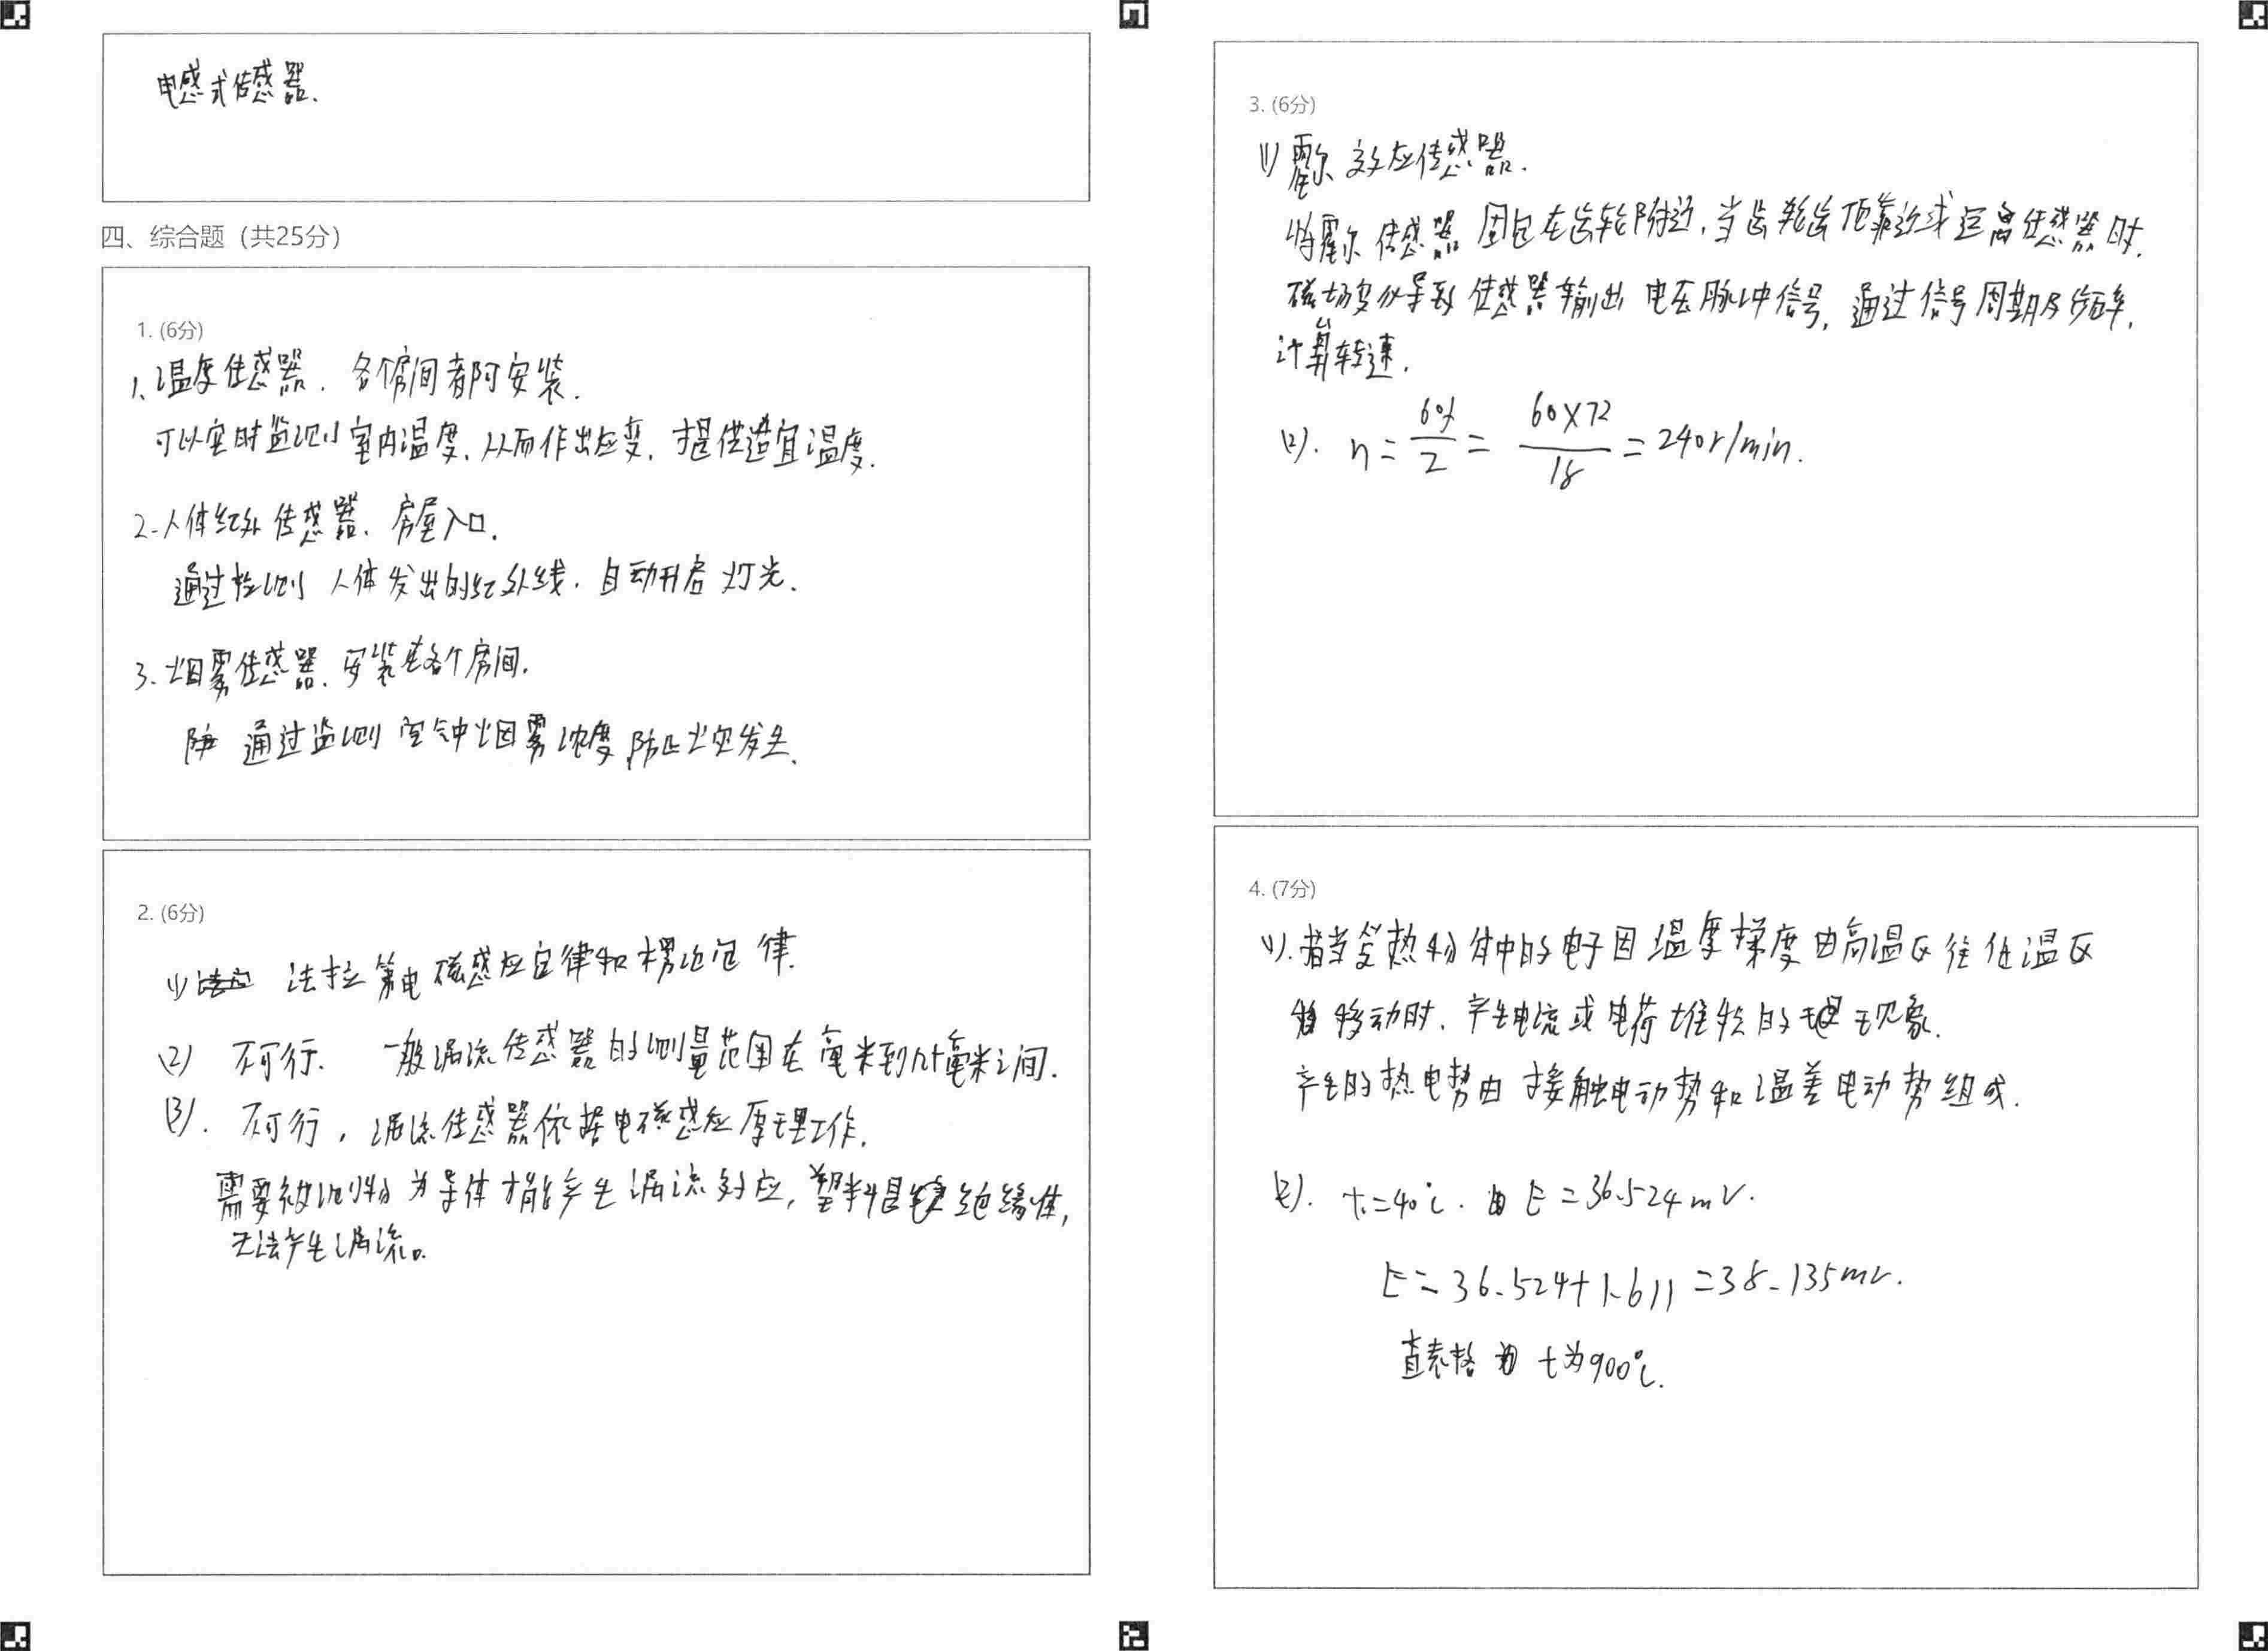 电感式传感器.
四、综合题（共25分）
1. (6分)
1、温度传感器. 各个房间都可安装.
可以实时监测室内温度, 从而作出应变, 提供适宜温度.
2-人体红外传感器. 房屋入口.
通过检测 人体发出的红外线. 自动开启灯光.
3-烟雾传感器. 安装在各个房间.
通过监测空气中烟雾浓度, 防止火灾发生.
2. (6分)
(1) 法拉第电磁感应定律和楞次定律.
(2) 不可行. 一般涡流传感器的测量范围在毫米到几十毫米之间.
(3). 不可行, 涡流传感器依据电磁感应原理工作.
需要被测物为导体才能产生涡流效应, 塑料是绝缘体,
无法产生涡流。
3. (6分)
(1) 霍尔效应传感器.
将霍尔传感器固定在齿轮附近, 当齿轮齿顶靠近或远离传感器时.
磁场变化导致传感器输出电压脉冲信号, 通过信号周期及频率,
计算转速.
(2). n = 60f/z = 60×72/18 = 240r/min.
4. (7分)
(1). 当受热物体中的电子因温度梯度由高温区往低温区
移动时. 产生电流或电荷堆积的现象.
产生的热电势由接触电动势和温差电动势组成.
(2). t₀=40℃. 由 E=36.524mV.
E=36.524+1.611=38.135mV.
查表格 t为900℃.